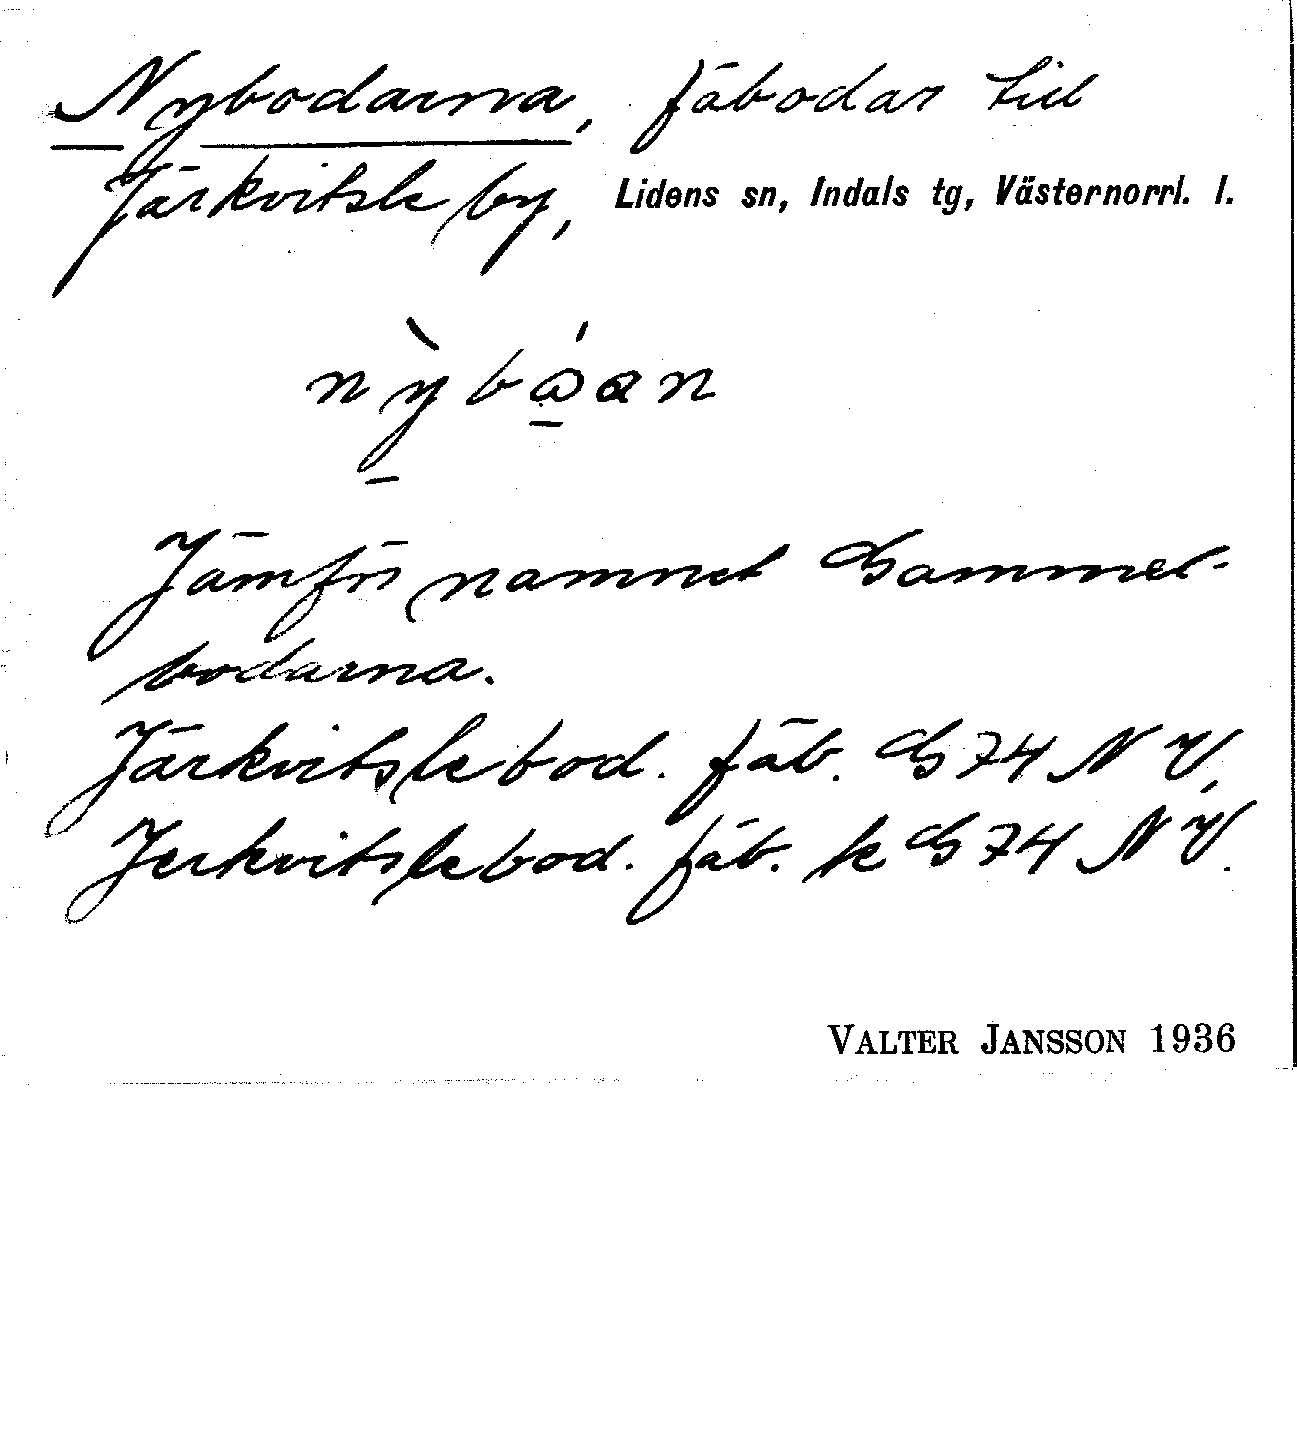 Nybodarna, fäbodar till
Järkvitsle by, Lidens sn, Indals tg, Västernorrl. l.
Jämför namnet Gammel-
bodarna.
Järkvitslebod. fäb. G 74 NV.
Jerkvitslebod. fäb. k G 74 NV.
VALTER JANSSON 1936